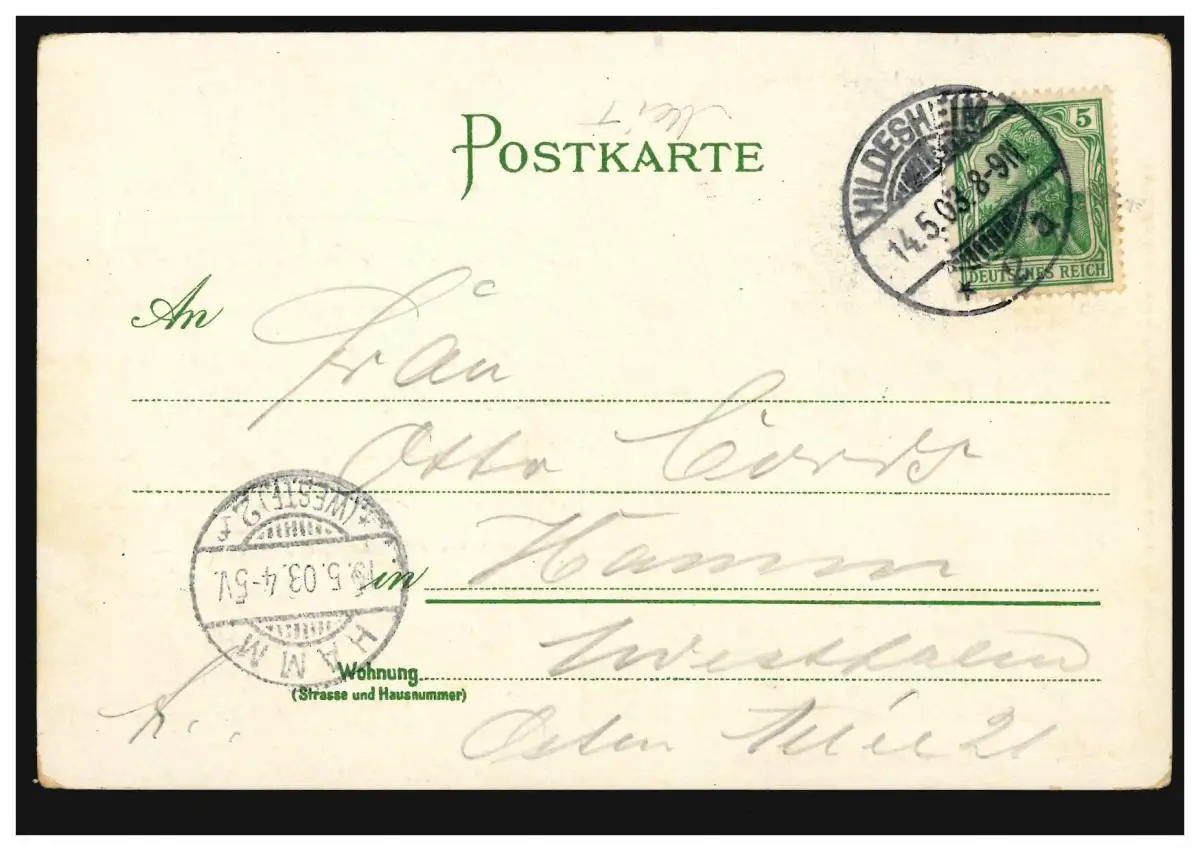 POSTKARTE
HILDESHEIM
14.5.03. 8-9N.
* 2 a
5
DEUTSCHES REICH
An
Frau
Otto Cords
in Hamm
Westfalen
Wohnung
(Strasse und Hausnummer)
Osten Allee 21
HAMM
5.03. 4-5V.
* (WESTF.) 2 *